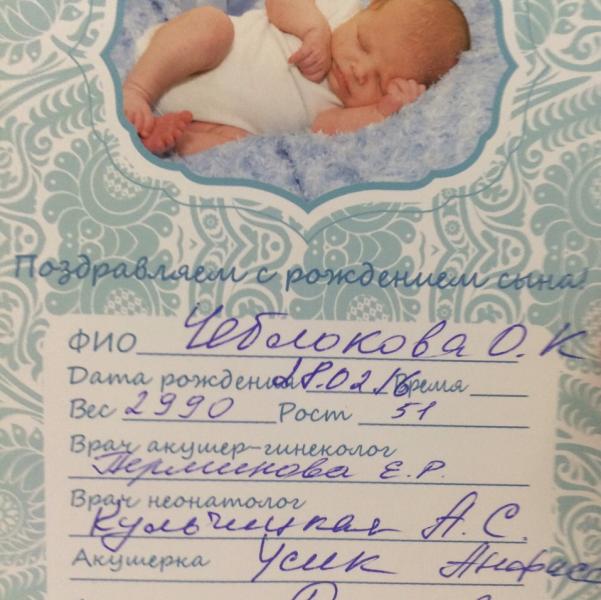 Поздравляем с рождением сына!
ФИО Чеблокова О. К
Дата рождения 28.02.16 Время
Вес 2990 Рост 51
Врач акушер-гинеколог
Перминова Е. Р.
Врач неонатолог
Кульчицкая А. С.
Акушерка Усик